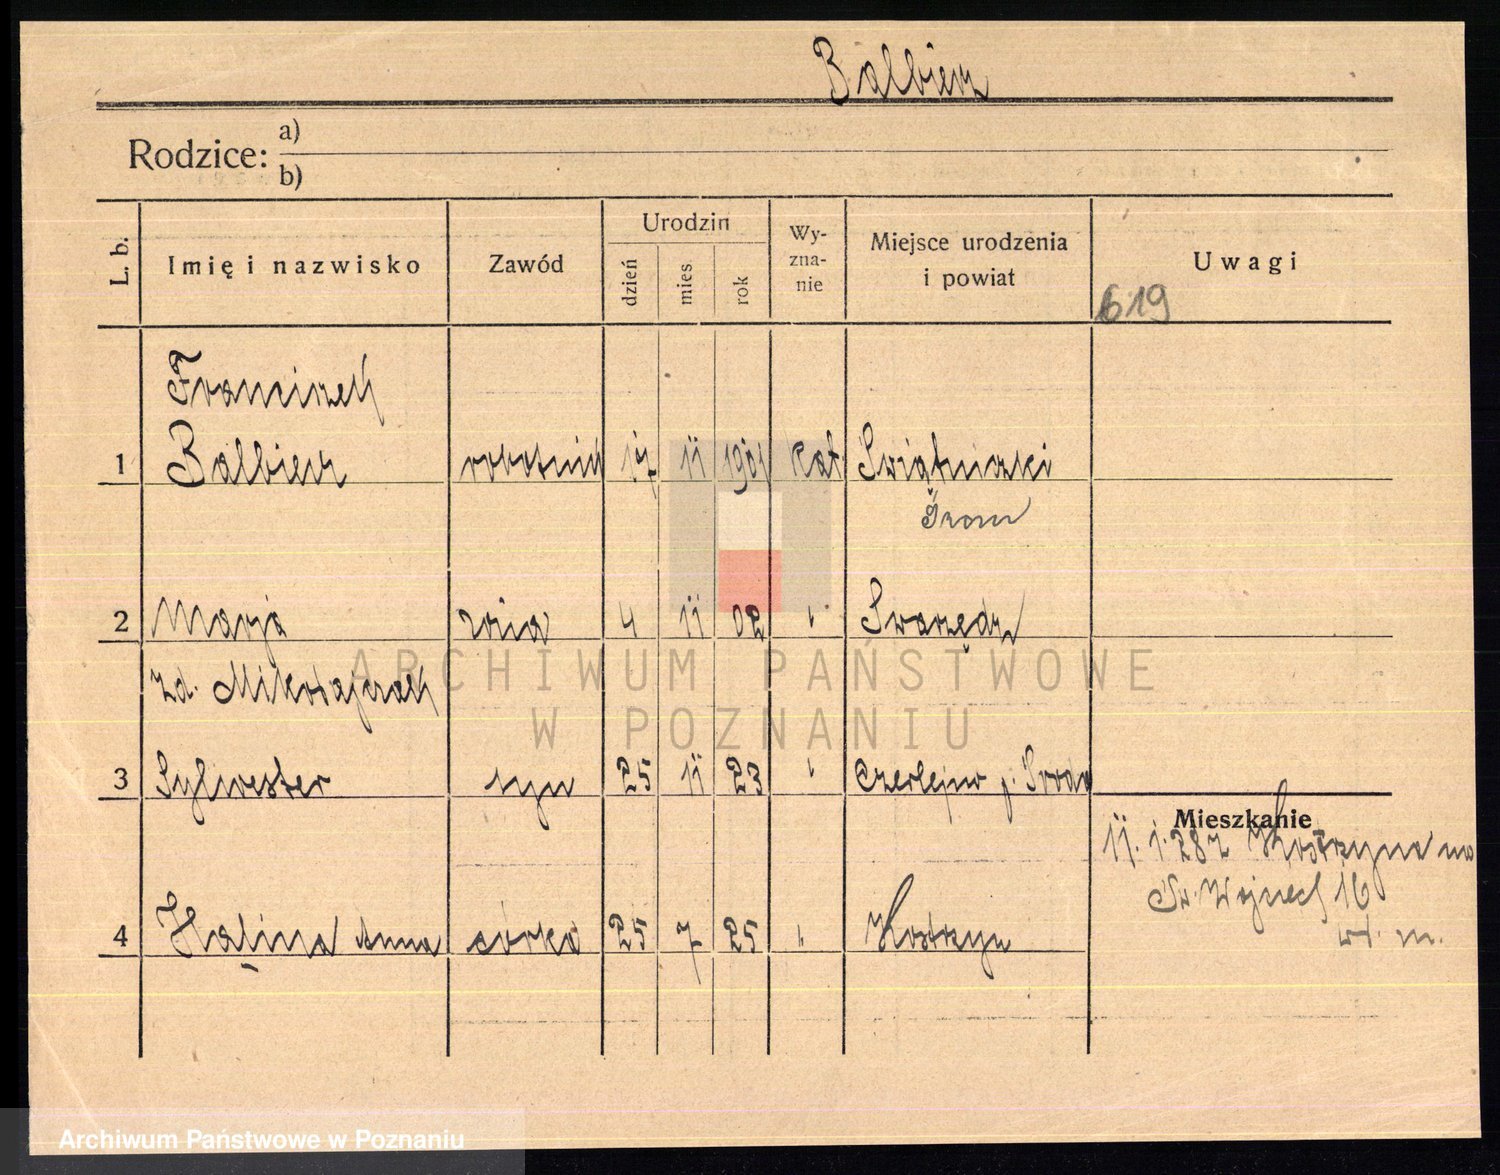 Balbierz
Rodzice: a)
b)
L. b. Imię i nazwisko Zawód Urodzin dzień mies rok Wy-zna-nie Miejsce urodzenia i powiat Uwagi
619
Franciszek
1 Balbierz robotnik 17 11 1901 kat. Swiątniczki
Śrem
2 Marja żona 4 11 02 " Swarzędz
zd. Mikołajczak
3 Sylwester syn 25 11 23 " Czerlejno p. Sroda
Mieszkanie
11. 1. 28 z Kostrzyna na
Św. Wojciech 16
4 Halina Anna córka 25 7 25 " Kostrzyn
wł. m.
ARCHIWUM PAŃSTWOWE
W POZNANIU
Archiwum Państwowe w Poznaniu